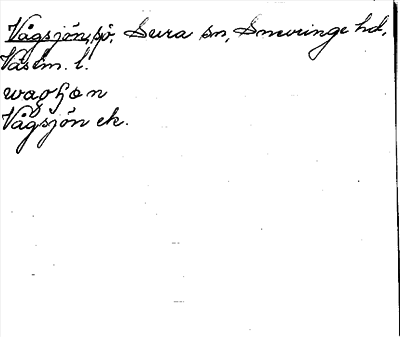 Vågsjön, sjö. Sura sn, Snevringe hd,
Västm. l.
Vågsjön ek.